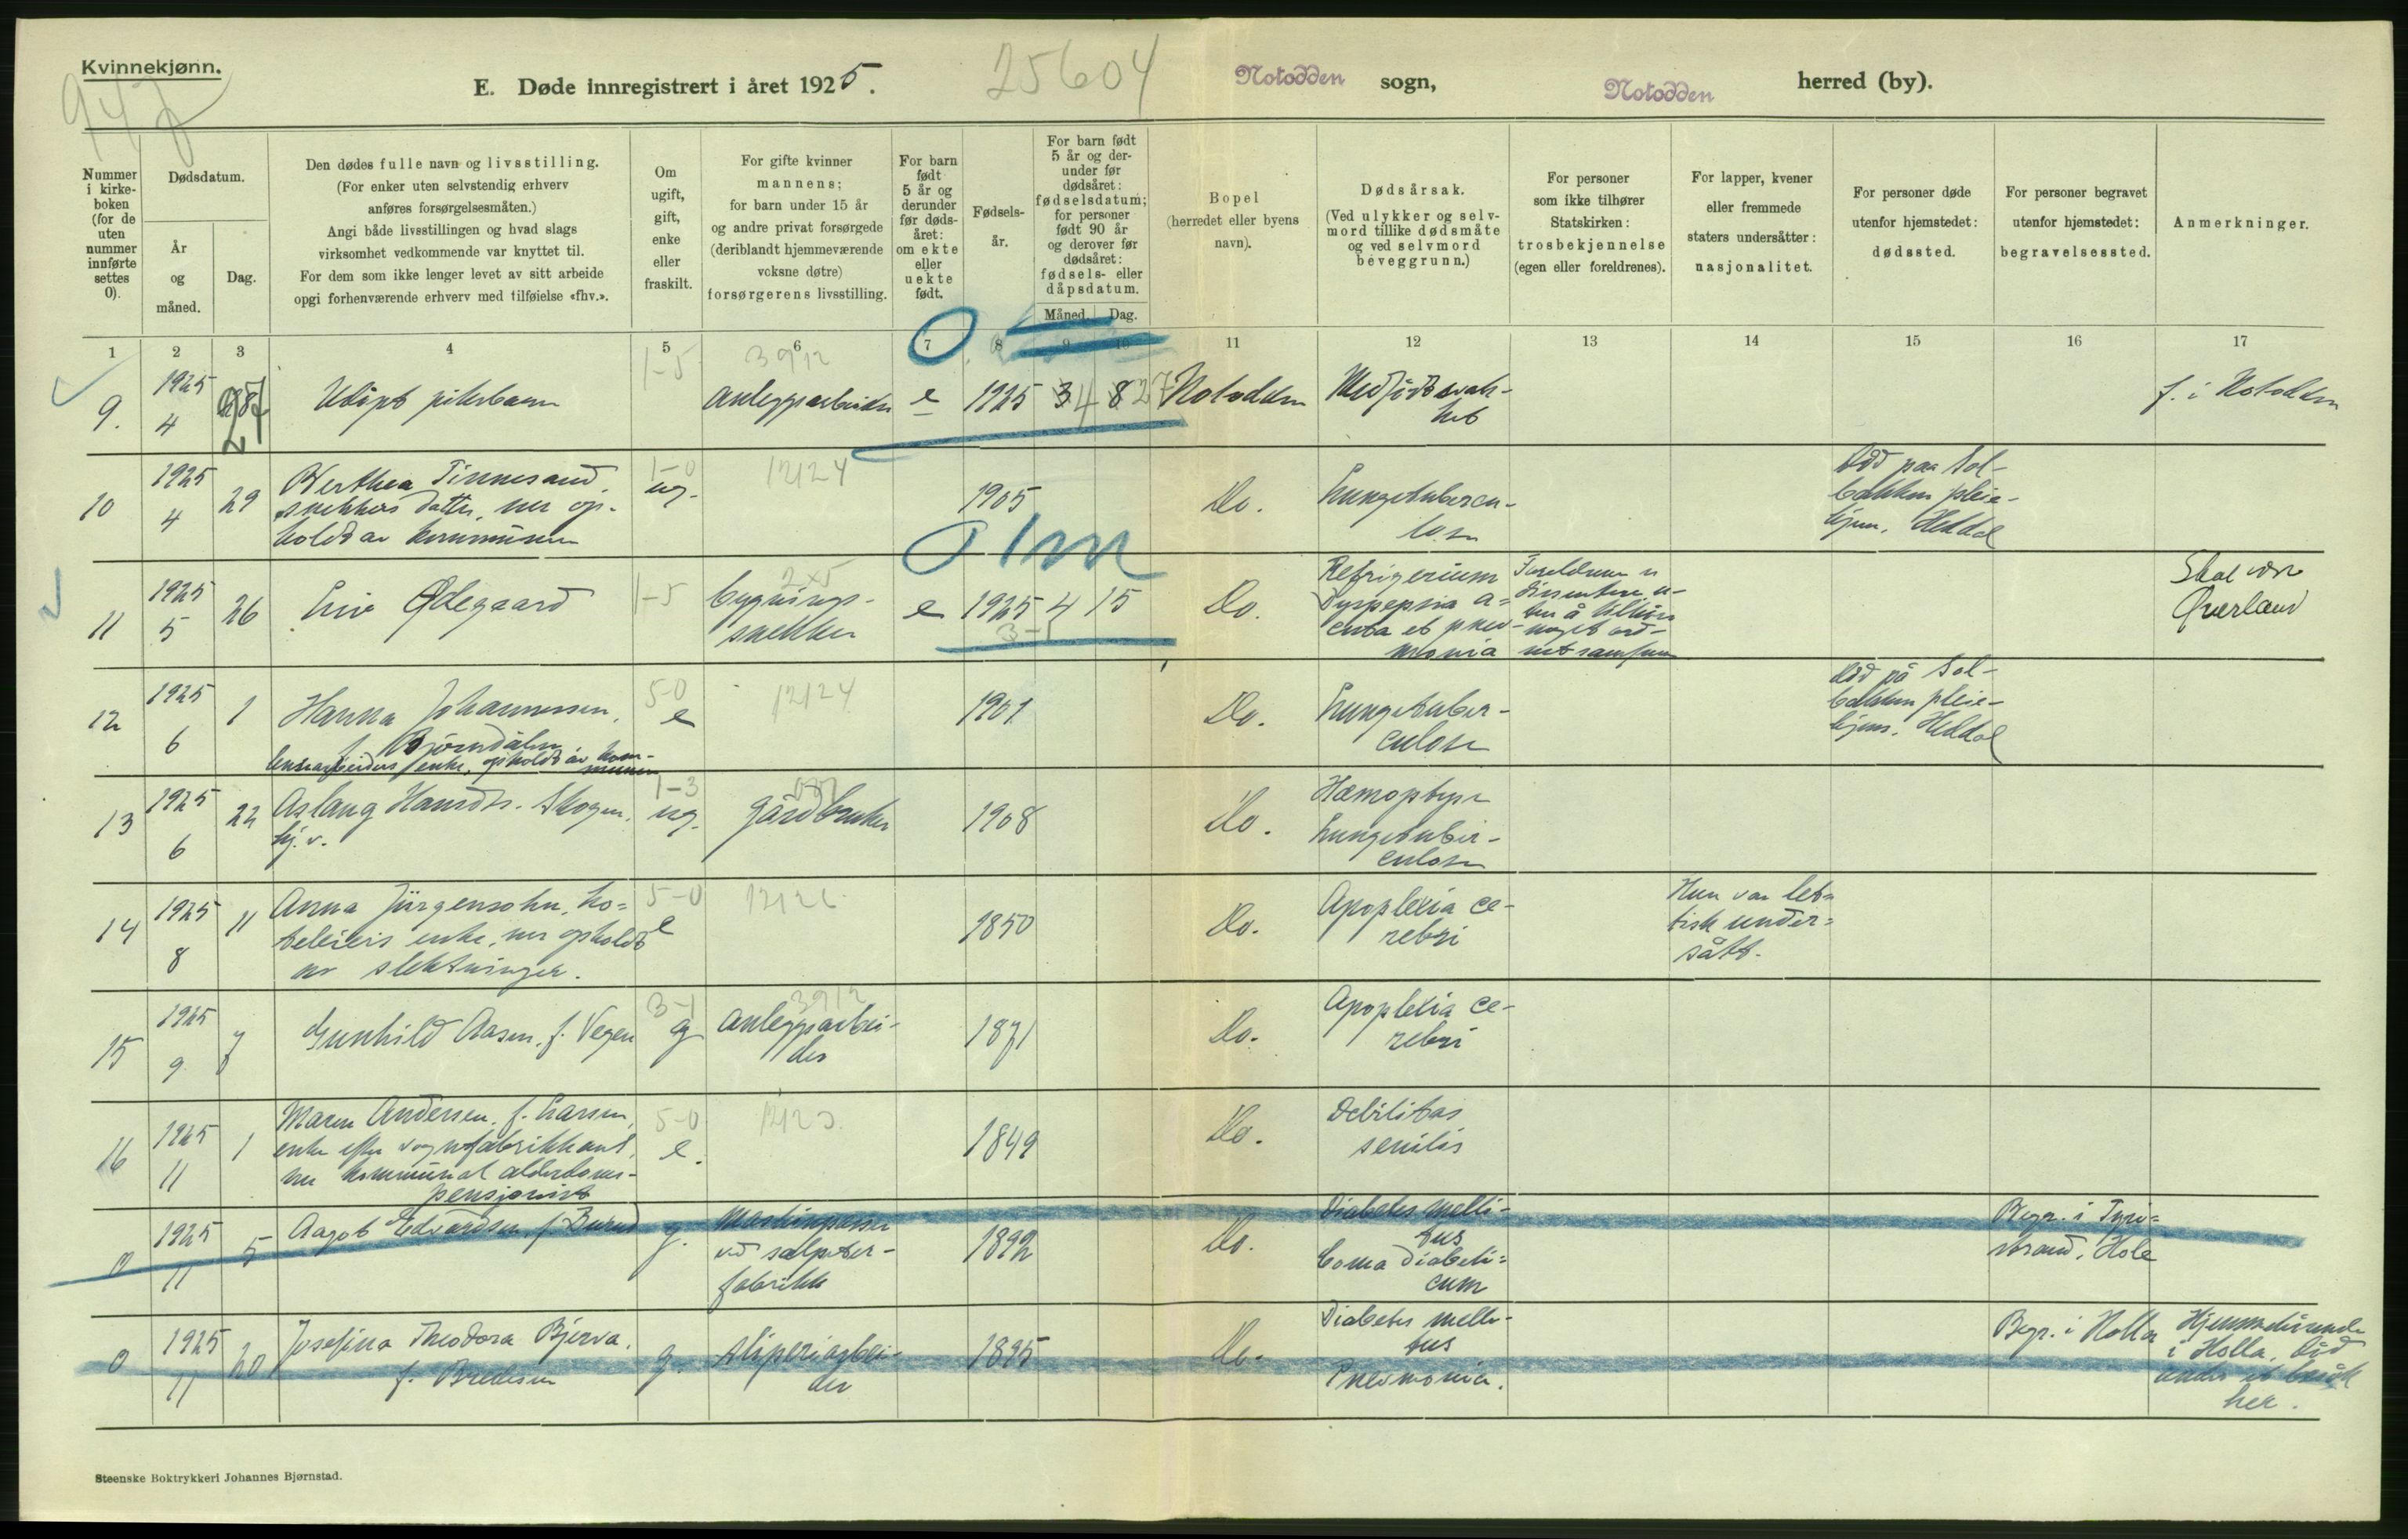 Kvinnekjønn.
947
E. Døde innregistrert i året 1925.
25604
Notodden sogn,
Notodden herred (by).
Nummer
i kirke-
boken
(for de
uten
nummer
innførte
settes
0).
Dødsdatum.
År
og
måned.
Dag.
Den dødes fulle navn og livsstilling.
(For enker uten selvstendig erhverv
anføres forsørgelsesmåten.)
Angi både livsstillingen og hvad slags
virksomhet vedkommende var knyttet til.
For dem som ikke lenger levet av sitt arbeide
opgi forhenværende erhverv med tilføielse «fhv.».
Om
ugift,
gift,
enke
eller
fraskilt.
For gifte kvinner
mannens;
for barn under 15 år
og andre privat forsørgede
(deriblandt hjemmeværende
voksne døtre)
forsørgerens livsstilling.
For barn
født
5 år og
derunder
før døds-
året:
om ekte
eller
uekte
født.
Fødsels-
år.
For barn født
5 år og der-
under før
dødsåret:
fødselsdatum;
for personer
født 90 år
og derover før
dødsåret:
fødsels- eller
dåpsdatum.
Måned. Dag.
Bopel
(herredet eller byens
navn).
Dødsårsak.
(Ved ulykker og selv-
mord tillike dødsmåte
og ved selvmord
beveggrunn.)
For personer
som ikke tilhører
Statskirken:
trosbekjennelse
(egen eller foreldrenes).
For lapper, kvener
eller fremmede
staters undersåtter:
nasjonalitet.
For personer døde
utenfor hjemstedet:
dødssted.
For personer begravet
utenfor hjemstedet:
begravelsessted.
Anmerkninger.
1 2 3 4 5 6 7 8 9 10 11 12 13 14 15 16 17
9.
1925
4
27
Udøpt pikebarn
1-5
3912
Anleggsarbeider
e
1925
4
27
Notodden
Medfødt svak-
het
f. i Notodden
10
1925
4
29
Berthea Tinnesand,
snekkers datter, un op-
holdt av kommunen
1-0
ug.
12124
1905
Do.
Lungetubercu-
lose
Død paa Sol-
bakken pleie-
hjem, Heddal
0 1m
11
1925
5
26
Liv Ødegaard
1-5
2x5
bygnings-
snekker
e
1925
4
15
3-1
Do.
Refrigerium
Dyspepsia a=
cuta et pnev-
monia
Foreldrene er
dissentere u-
ten å tilhøre
noget ord-
net samfunn
Skal være
Øverland
12
1925
6
1
Hanna Johannessen,
f. Bjørndalen
lensearbeiders enke, opholdt av kom-
munen
5-0
e
12124
1901
Do.
Lungetuber-
culose
Død på Sol-
bakken pleie-
hjem, Heddal
13
1925
6
22
Aslaug Hansdtr. Skogen,
hj. v.
1-3
ug.
gårdbruker
1908
Do.
Hæmoptyse
Lungetuber-
culose
14
1925
8
11
Anna Jürgensohn, ho=
teleiers enke, un opholdt
av slektninger.
5-0
e
12126
1850
Do.
Apoplexia ce-
rebri
Hun var let=
tisk under=
sått.
15
1925
9
7
Gunhild Aasen, f. Vegen
3-1
g
3912
Anleggsarbei-
der
1871
Do.
Apoplexia ce-
rebri
16
1925
11
1
Maren Andersen, f. Larsen,
enke efter vognfabrikkant,
un kommunal alderdoms-
pensjonist
5-0
e.
1849
Do.
Debilitas
senilis
0
1925
11
5
Aagot Edvardsen, f. Burud
g.
Maskinpasser
ved salpeter-
fabrikk
1892
Do.
Diabetes melli-
tus
Coma diabeti=
cum
Begr. i Tyri=
strand, Hole
0
1925
11
20
Josefina Theodora Bjerva,
f. Bredesen
g.
Sliperiarbei-
der
1895
Do.
Diabetes melli-
tus
Pneumonia.
Begr. i Holla
Hjemmehørende
i Holla, død
under et besøk
her.
Steenske Boktrykkeri Johannes Bjørnstad.